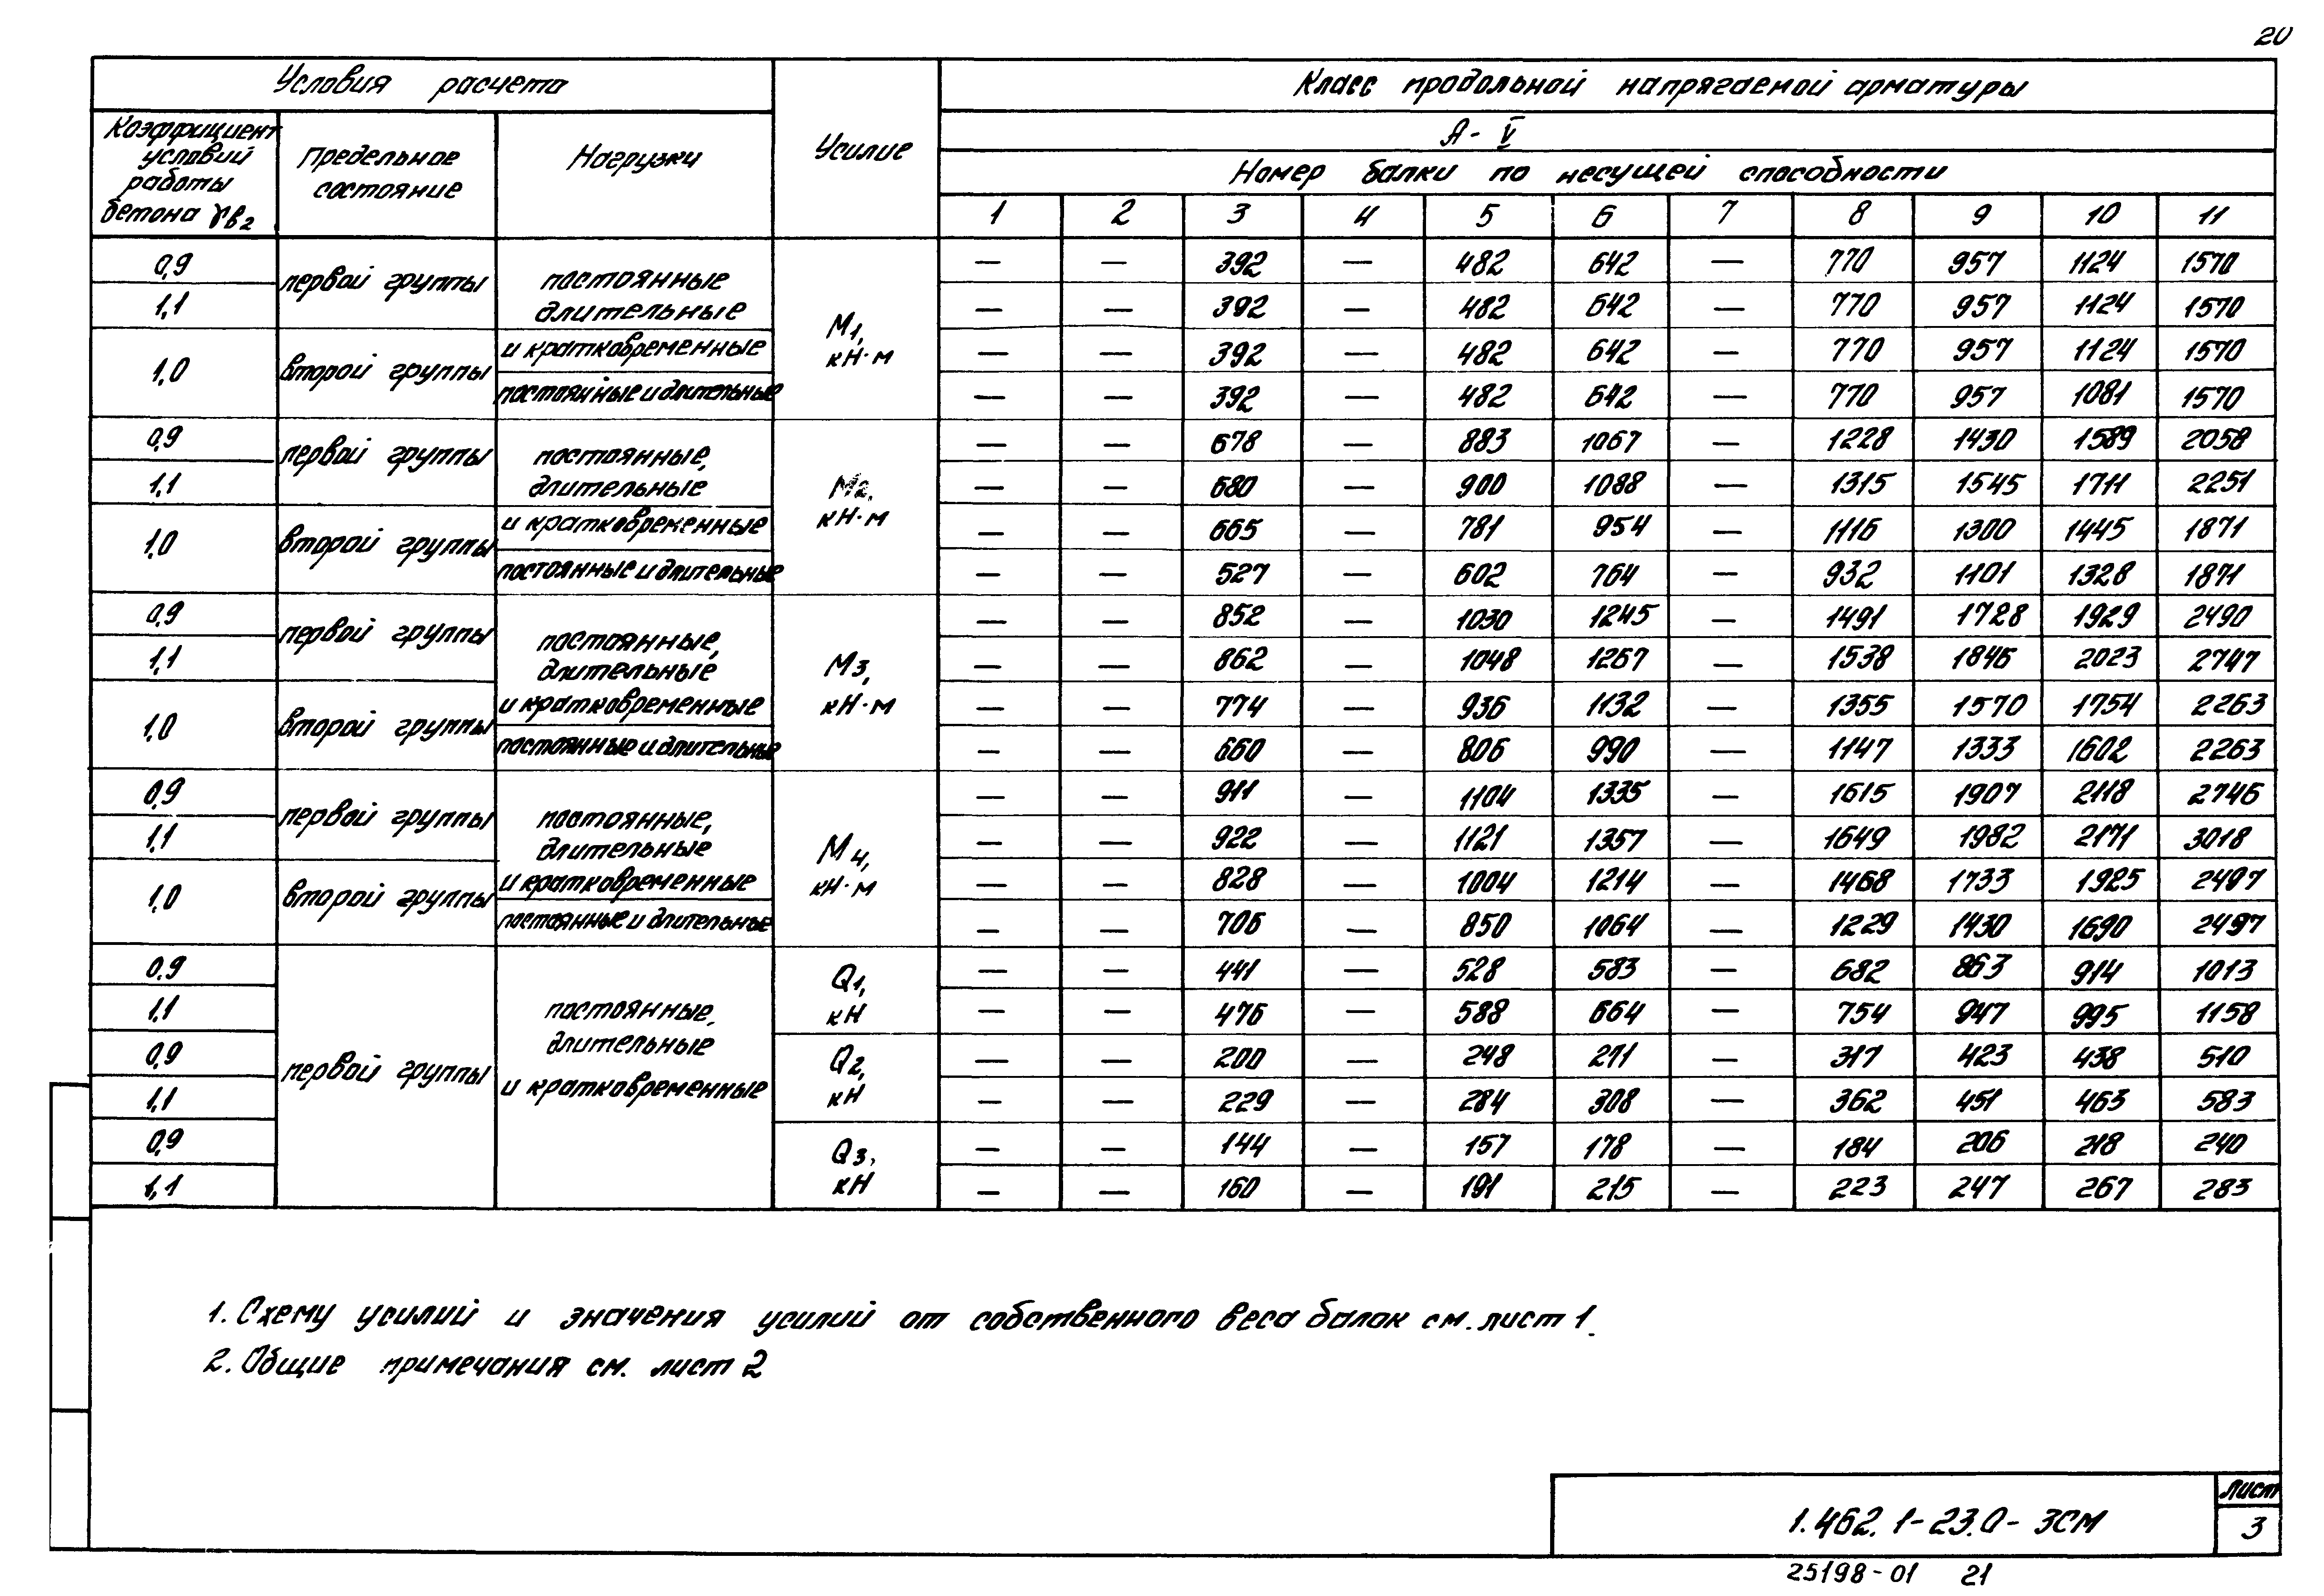 20
Условия расчета
Класс продольной напрягаемой арматуры
Коэффициент условий работы бетона γв2
Предельное состояние
Нагрузки
Усилие
А-V
Номер балки по несущей способности
1 2 3 4 5 6 7 8 9 10 11
0,9 первой группы постоянные — — 392 — 482 642 — 770 957 1124 1570
1,1 длительные — — 392 — 482 642 — 770 957 1124 1570
М1, кН·м
1,0 второй группы и кратковременные — — 392 — 482 642 — 770 957 1124 1570
постоянные и длительные — — 392 — 482 642 — 770 957 1081 1570
0,9 первой группы постоянные, — — 678 — 883 1067 — 1228 1430 1589 2058
1,1 длительные — — 680 — 900 1088 — 1315 1545 1711 2251
М2, кН·м
1,0 второй группы и кратковременные — — 665 — 781 954 — 1116 1300 1445 1871
постоянные и длительные — — 527 — 602 764 — 932 1101 1328 1871
0,9 первой группы постоянные, — — 852 — 1030 1245 — 1491 1728 1929 2490
1,1 длительные — — 862 — 1048 1267 — 1538 1846 2023 2747
М3, кН·м
1,0 второй группы и кратковременные — — 774 — 936 1132 — 1355 1570 1754 2263
постоянные и длительные — — 660 — 806 990 — 1147 1333 1602 2263
0,9 первой группы постоянные, — — 911 — 1104 1335 — 1615 1907 2118 2746
1,1 длительные — — 922 — 1121 1357 — 1649 1982 2171 3018
М4, кН·м
1,0 второй группы и кратковременные — — 828 — 1004 1214 — 1468 1733 1925 2497
постоянные и длительные — — 706 — 850 1064 — 1229 1430 1690 2497
0,9 Q1, — — 441 — 528 583 — 682 863 914 1013
1,1 постоянные, кН — — 476 — 588 664 — 754 947 995 1158
0,9 длительные Q2, — — 200 — 248 271 — 317 423 438 510
1,1 первой группы и кратковременные кН — — 229 — 284 308 — 362 451 463 583
0,9 Q3, — — 144 — 157 178 — 184 206 218 240
1,1 кН — — 160 — 191 215 — 223 247 267 283
1. Схему усилий и значения усилий от собственного веса балок см. лист 1.
2. Общие примечания см. лист 2
1.462.1-23.0-3СМ
лист
3
25198-01 21